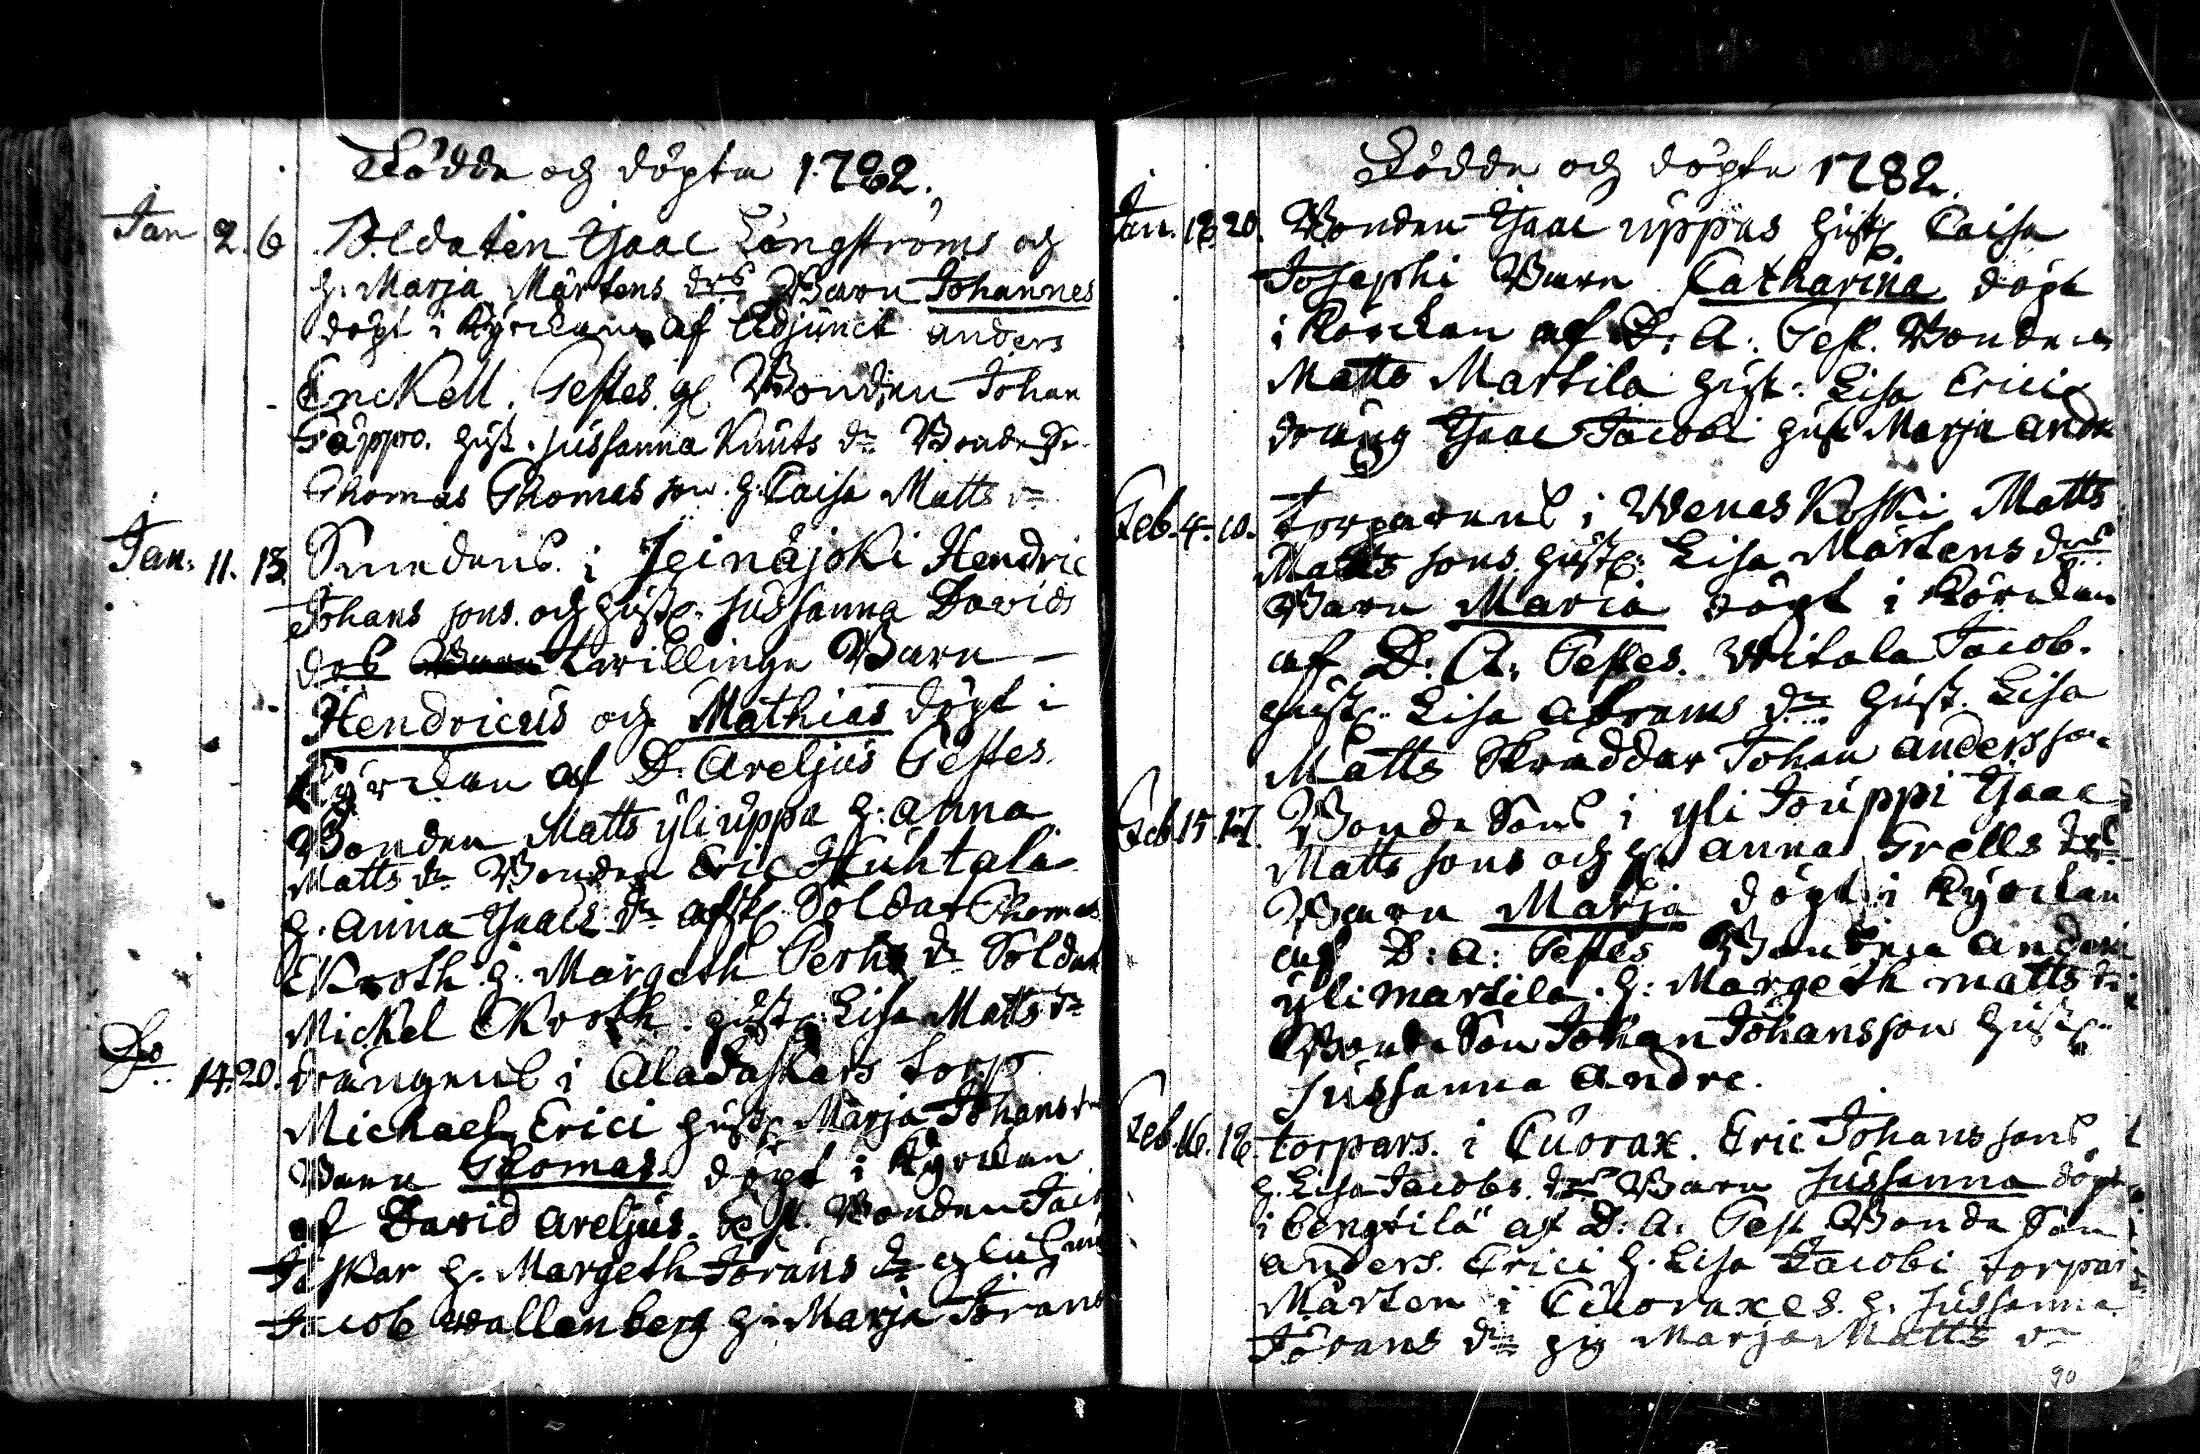 Födde och döpta 1782.
Jan 2. 6 Soldaten Isaac Långströms och
h. Marja Mårtens drs Barn Johannes
döpt i Kyrckan af Adjunct anders
Enckell. Testes. Bonden Johan
hust. Sussanna Knuts dr Bonde Sn
Thomas Thomas son. h. Caisa Matts dr
Jan. 11. 13. Smedens i Seinäjoki Hendric
Johans sons och hust. Sussanna Davids
drs twillinge Barn
Hendricus och Mathias döpt i
Kyrckan af D. Areljus Testes.
Bonden Matts yliuppa h. anna
Matts dr Bonden Eric Huhtala
h. anna Isacs dr afsk. Soldat Thomas
Kroth h. Margeth dr Soldat
Mickel Kroth. hust. Lisa Matts dr
Do 14. 20. drängens i Torp
Michael Erici hust. Marja Johans dr
Barn Thomas. döpt i Kyrckan
af David Areljus. Test. Bonden
h. Margeth Jörans dr
Jacob Wallenberg h. Marja Jörans
Födde och döpte 1782.
Jan. 18. 20. Bonden Isaac uppas hust Caisa
Josephi Barn Catharina döpt
i Körckan af D. A. Test. Bonden
Matts Martila hust. Lisa Erici
dräng Isaac Jacobi hust Marja And
Feb. 4. 10. torparens i Wenes Koski Matts
Matts sons hust. Lisa Mårtens drs
Barn Maria döpt i Körckan
af D. A. Testes. Jacob.
hust. Lisa Abrams dr hust. Lisa
Matts Skräddar Johan anders son
Feb. 15. 17. Bonde Sons i yli Jouppi Isaac
Matts sons och h. anna Grells drs
Barn Marja döpt i Kyrckan
af D. A. Testes Bonden anders
yliMartila. h. Margeth Matts dr
Bonde Son Johan Johansson hust.
Sussanna Andre.
Feb. 16. 18. torpars. i Cuorax. Eric Johans sons
h. Lisa Jacobs. drs Barn Sussanna döpt
i bengsilä af D. A. Test Bonde Son
anders. Erici h. Lisa Jacobi torpar
Mårten i Cuoraxes. h. Sussanna
Jörans dr pig Marja Matts dr
90